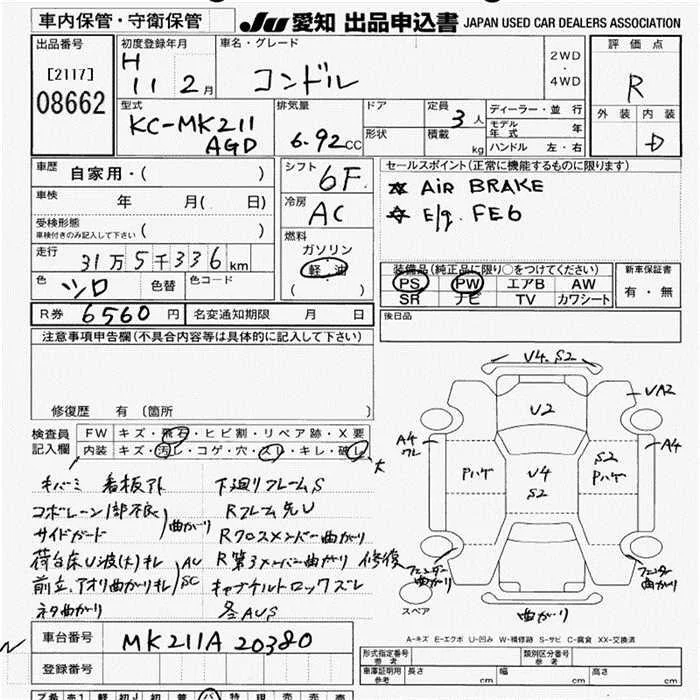 車内保管・守衛保管
JU 愛知 出品申込書 JAPAN USED CAR DEALERS ASSOCIATION
出品番号
[2117]
08662
初度登録年月
H 11 2月
車名・グレード
コンドル
2WD
・
4WD
評価点
R
外装 内装
D
型式
KC-MK211
AGD
排気量
6.92cc
ドア
形状
定員 3人
積載 kg
ディーラー・並行
モデル年式 年
ハンドル 左・右
車歴 自家用・( )
車検 年 月( 日)
受検形態
車検付きのみ記入して下さい ( )
走行 31万5千336km
色 シロ 色替 色コード
R券 6560円 名変通知期限 月 日
シフト 6F
冷房 AC
燃料
ガソリン
軽油
( )
セールスポイント(正常に機能するものに限ります)
☆ AIR BRAKE
☆ E/g. FE6
装備品(純正品に限り○をつけてください)
PS PW エアB AW
SR ナビ TV カワシート
新車保証書
有・無
後日品
注意事項申告欄(不具合内容等は具体的に記入して下さい)
修復歴 有(箇所 )
検査員記入欄
FW キズ・飛石・ヒビ割・リペア跡・X要
内装 キズ・汚レ・コゲ・穴・スレ・キレ・破レ
大
キバミ 看板アト
コボレーン1部不良
サイドガード
曲がり
荷台床U波(大)キレ
前立、アオリ曲がりキレ
AU
SC
ネタ曲がり
下廻りフレームS
Rフレーム先U
Rクロスメンバー曲がり
R第3メンバー曲がり 修復
キャブチルトロックズレ
各AUS
V4.S2
V2
UA2
A4
ワレ
A4
Pハゲ
V4
S2
S2
Pハゲ
フェンダー
曲がり
フェンダー
曲がり
スペア
曲がり
A-キズ E-エクボ U-凹み W-補修跡 S-サビ C-腐食 XX-交換済
車台番号 MK211A 20380
登録番号
形式指定番号
参考
類別区分番号
参考
車庫証明用
参考
長さ cm 幅 cm 高さ cm